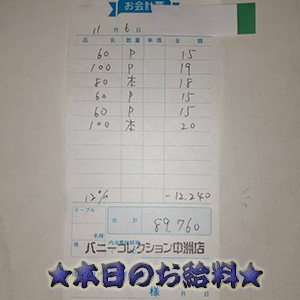 お会計票
11月6日
品名 数量 単価 金額
60 P 15
100 P 19
80 本 18
60 P 15
60 P 15
100 本 20
12% -12.240
テーブル
合計 89.760
名様
バニーコレクション中洲店
★本日のお給料★
様 月 日